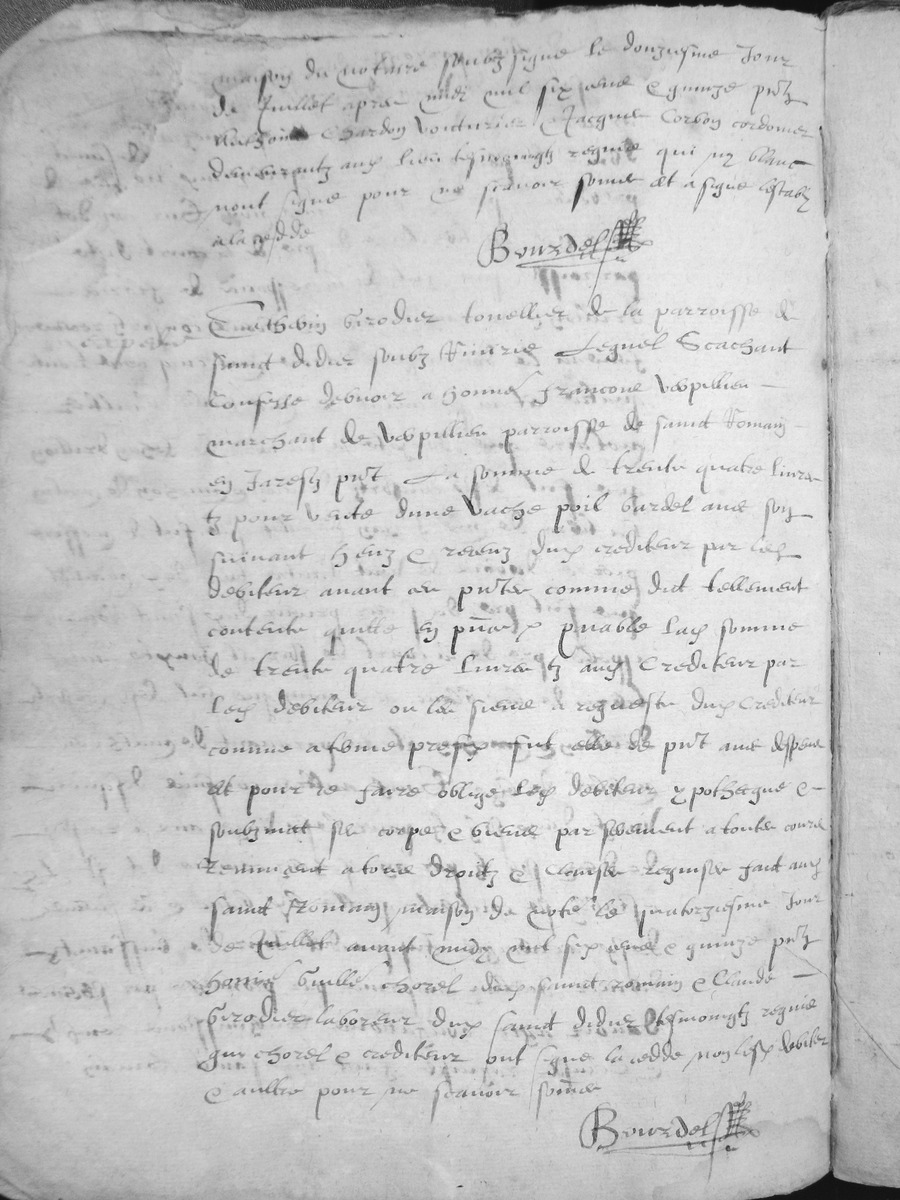 maison du notaire soubz signe le douziesme Jour
de Juillet apres midy mil six cens & quinze pntz
Chardon voiturier & Jacques Corbon cordonier
aux lieu tesmoingtz requis qui
nont signe pour ne scavoir somes et a signe lestably
a la cedde
Bourdel
Girodier tonellier de la parroisse de
sainct didier soubz Riverie Lequel Scachant
Confesse debvoir a honnel francois vespillieu
marchant de vespillieu parroisse de sainct Romain
en Jaresz pnt La somme de trente quatre livres
tz pour vente dune vache poil bardel avec son
suivant heuz & receuz dud crediteur par led
debiteur avant ces pntes comme dict tellement
contente quitte en payable lad somme
de trente quatre livres tz aud Crediteur par
led debiteur ou les siens a requeste dud Crediteur
comme a terme prefix fut elle de pnt avec despens
et pour ce faire oblige led debiteur ypothecque &
soubzmet ses corps & biens par serement a toutes cours
renuncent a tous droitz & clauses requises fait aud
sainct Romain maison de note le quatorziesme Jour
de Juillet avant midy mil six cens & quinze pntz
honnel Guille chorel dud sainct Romain & Claude
Girodier laboreur dud sainct didier tesmoingtz requis
qui chorel & crediteur ont signe la cedde non led debiter
& aultre pour ne scavoir somes
Bourdel